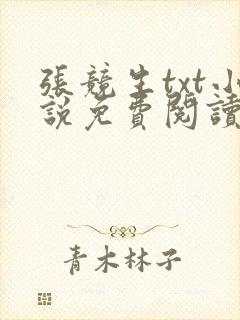 張競生txt小
說免費閱讀
青木林子